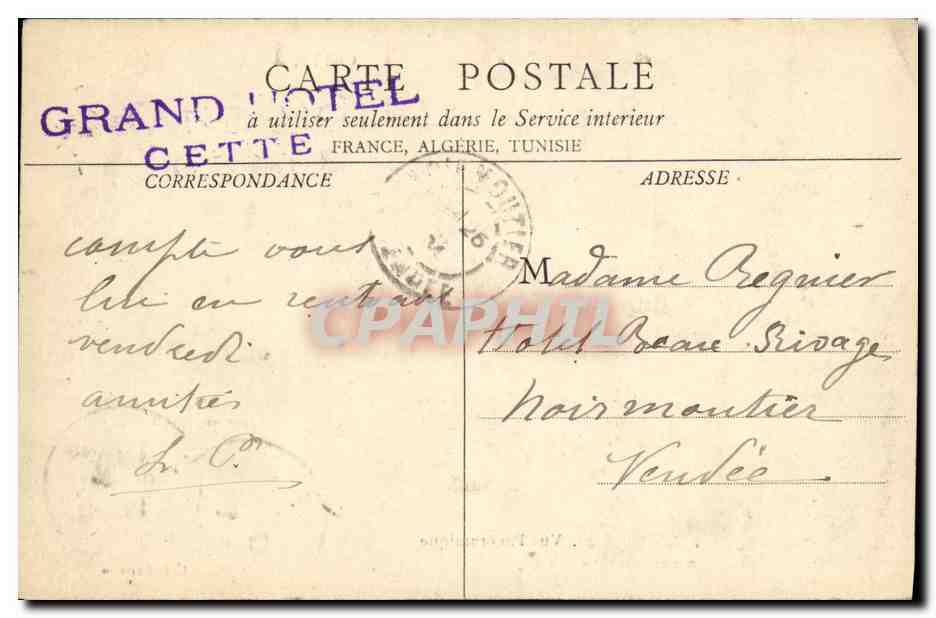 CARTE POSTALE
GRAND HOTEL
CETTE
à utiliser seulement dans le Service interieur
FRANCE, ALGÉRIE, TUNISIE
CORRESPONDANCE
ADRESSE
NOIRMOUTIER
26
VENDÉE
compte vous
lire en rentrant
vendredi.
amitiés
Madame Regnier
Hotel Beau Rivage
Noirmoutier
Vendée
CPAPHIL